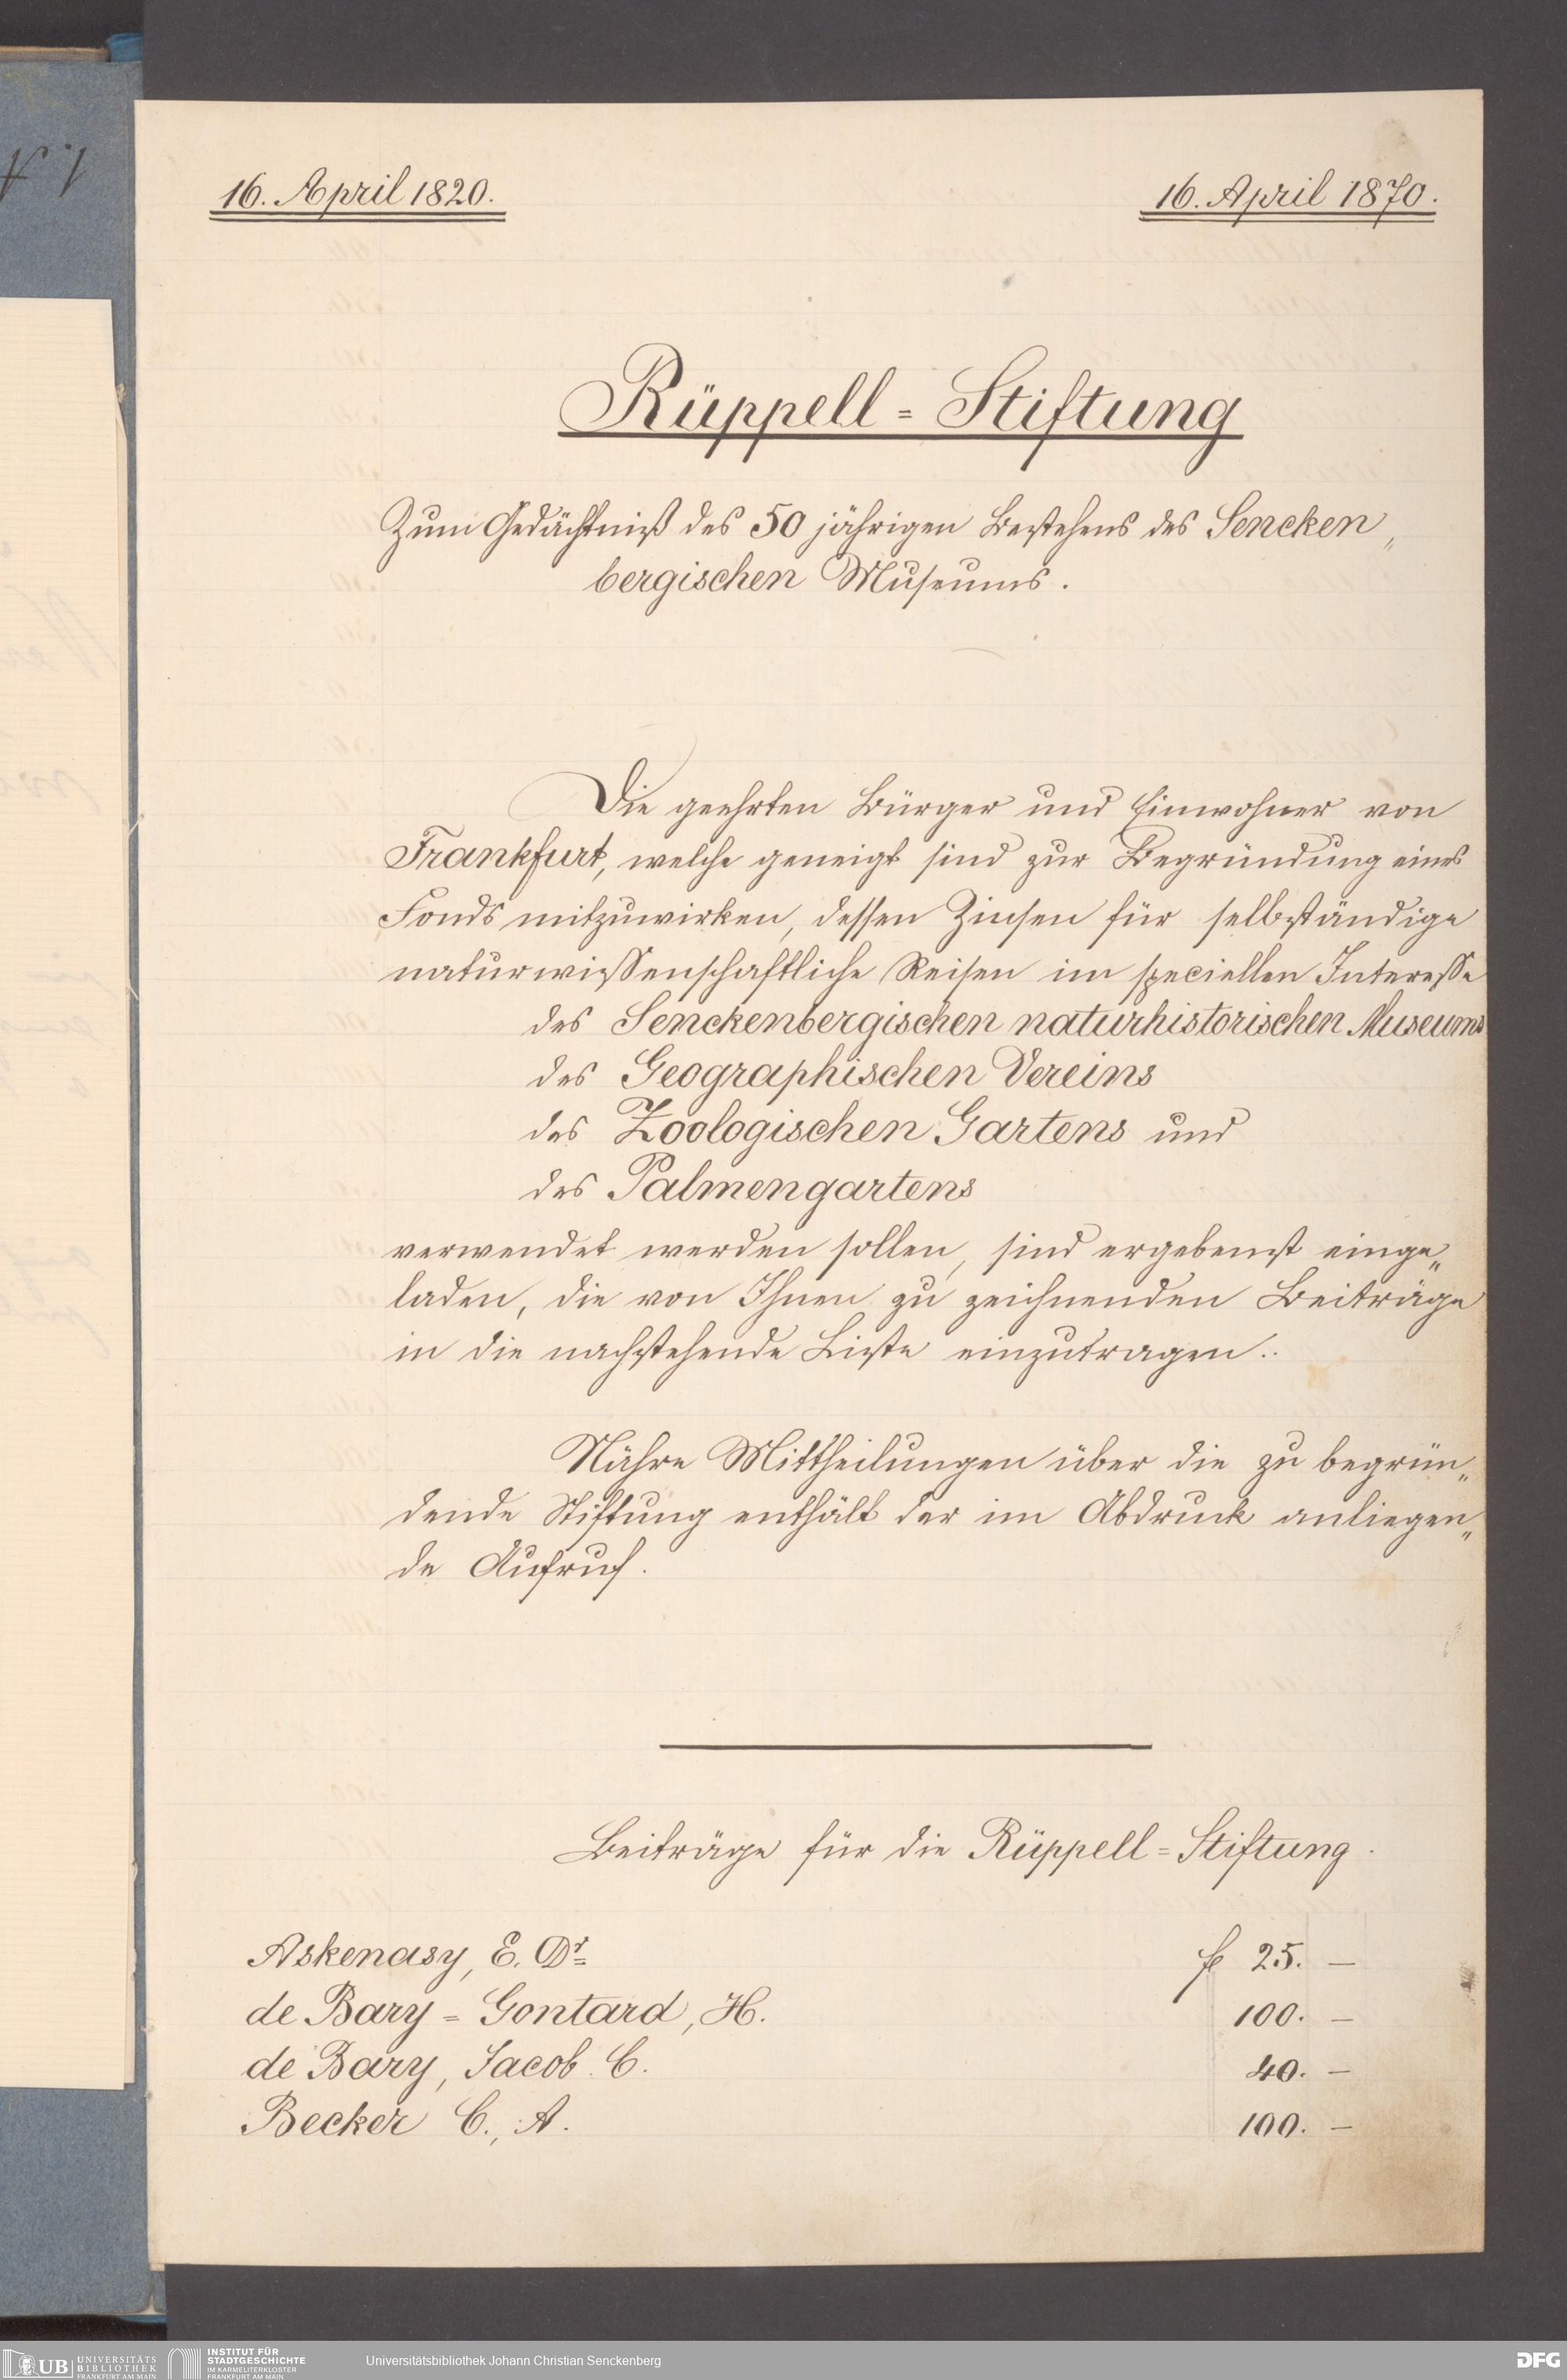 16. April 1820.
16. April 1870.
Rüppell=Stiftung
Zum Gedächtniß des 50 jährigen Bestehens des Sencken„
bergischen Museums.
Die geehrten Bürger und Einwohner von
Frankfurt, welche geneigt sind zur Begründung eines
Fonds mitzuwirken, dessen Zinsen für selbständige
naturwissenschaftliche Reisen im speciellen Interesse
des Senckenbergischen naturhistorischen Museums
des Geographischen Vereins
des Zoologischen Gartens und
des Palmengartens
verwendet werden sollen, sind ergebenst einge„
laden, die von Ihnen zu zeichnenden Beiträge
in die nachstehende Liste einzutragen.
Nähre Mittheilungen über die zu begrün„
dende Stiftung enthält der im Abdruck anliegen„
de Aufruf.
Beiträge für die Rüppell=Stiftung.
Askenasy, E. Dr. fl 25. —
de Bary=Gontard, H. 100. —
de Bary, Jacob C. 40. —
Becker C., A. 100. —
UB UNIVERSITÄTS
BIBLIOTHEK
FRANKFURT AM MAIN
INSTITUT FÜR
STADTGESCHICHTE
IM KARMELITERKLOSTER
FRANKFURT AM MAIN
Universitätsbibliothek Johann Christian Senckenberg
DFG